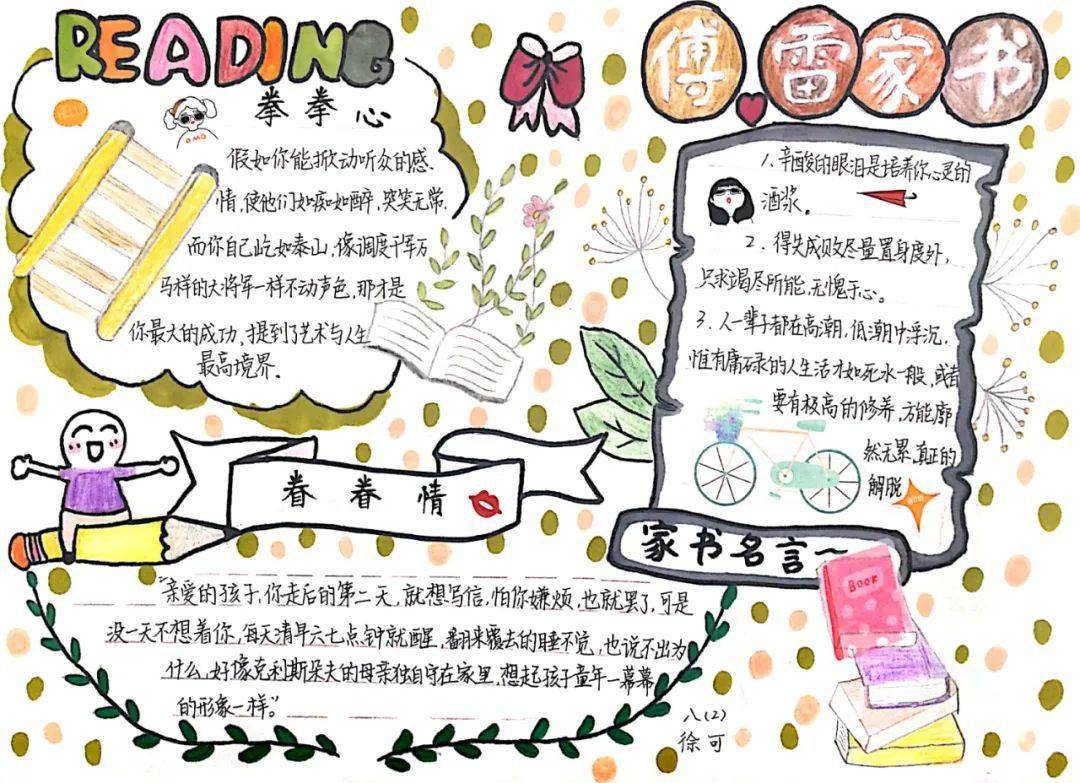 READING
拳拳心
OMG
假如你能掀动听众的感
情,使他们如痴如醉,哭笑无常.
而你自己屹如泰山,像调度千军万
马样的大将军一样不动声色,那才是
你最大的成功,提到了艺术与人生
最高境界.
傅雷家书
1、辛酸的眼泪是培养你心灵的
酒浆。
2、得失成败尽量置身度外,
只求竭尽所能,无愧于心。
3、人一辈子都在高潮、低潮中浮沉,
惟有庸碌的人生活才如死水一般,或者
要有极高的修养,方能廓
然无累,真正的
解脱
家书名言~
BOOK
眷眷情
"亲爱的孩子,你走后的第二天,就想写信,怕你嫌烦,也就罢了,可是
没一天不想着你,每天清早六七点钟就醒,翻来覆去的睡不觉,也说不出为
什么,好像克利斯朵夫的母亲独自守在家里,想起孩子童年一幕幕
的形象一样。"
八(2)
徐可